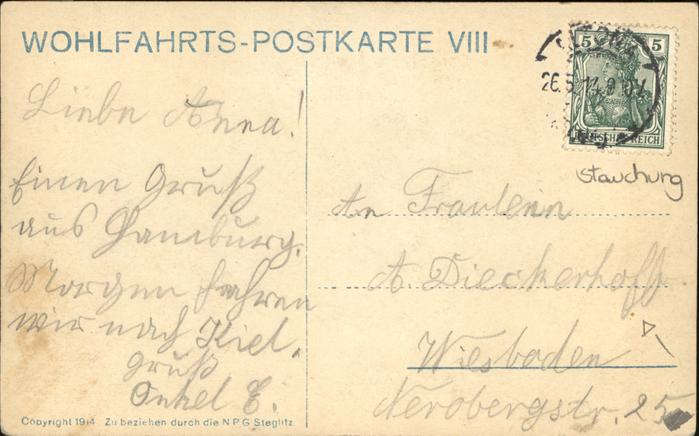 WOHLFAHRTS-POSTKARTE VIII
5 5
26.5.14.9-10V.
DEUTSCHES REICH
Stauchung
Liebe Anna!
Einen Gruß
aus Hamburg.
Morgen fahren
wir nach Kiel.
Gruß
Onkel E.
An Fraulein
A. Dieckerhoff
Wiesbaden
Nerobergstr. 25
Copyright 1914 Zu beziehen durch die NPG Steglitz